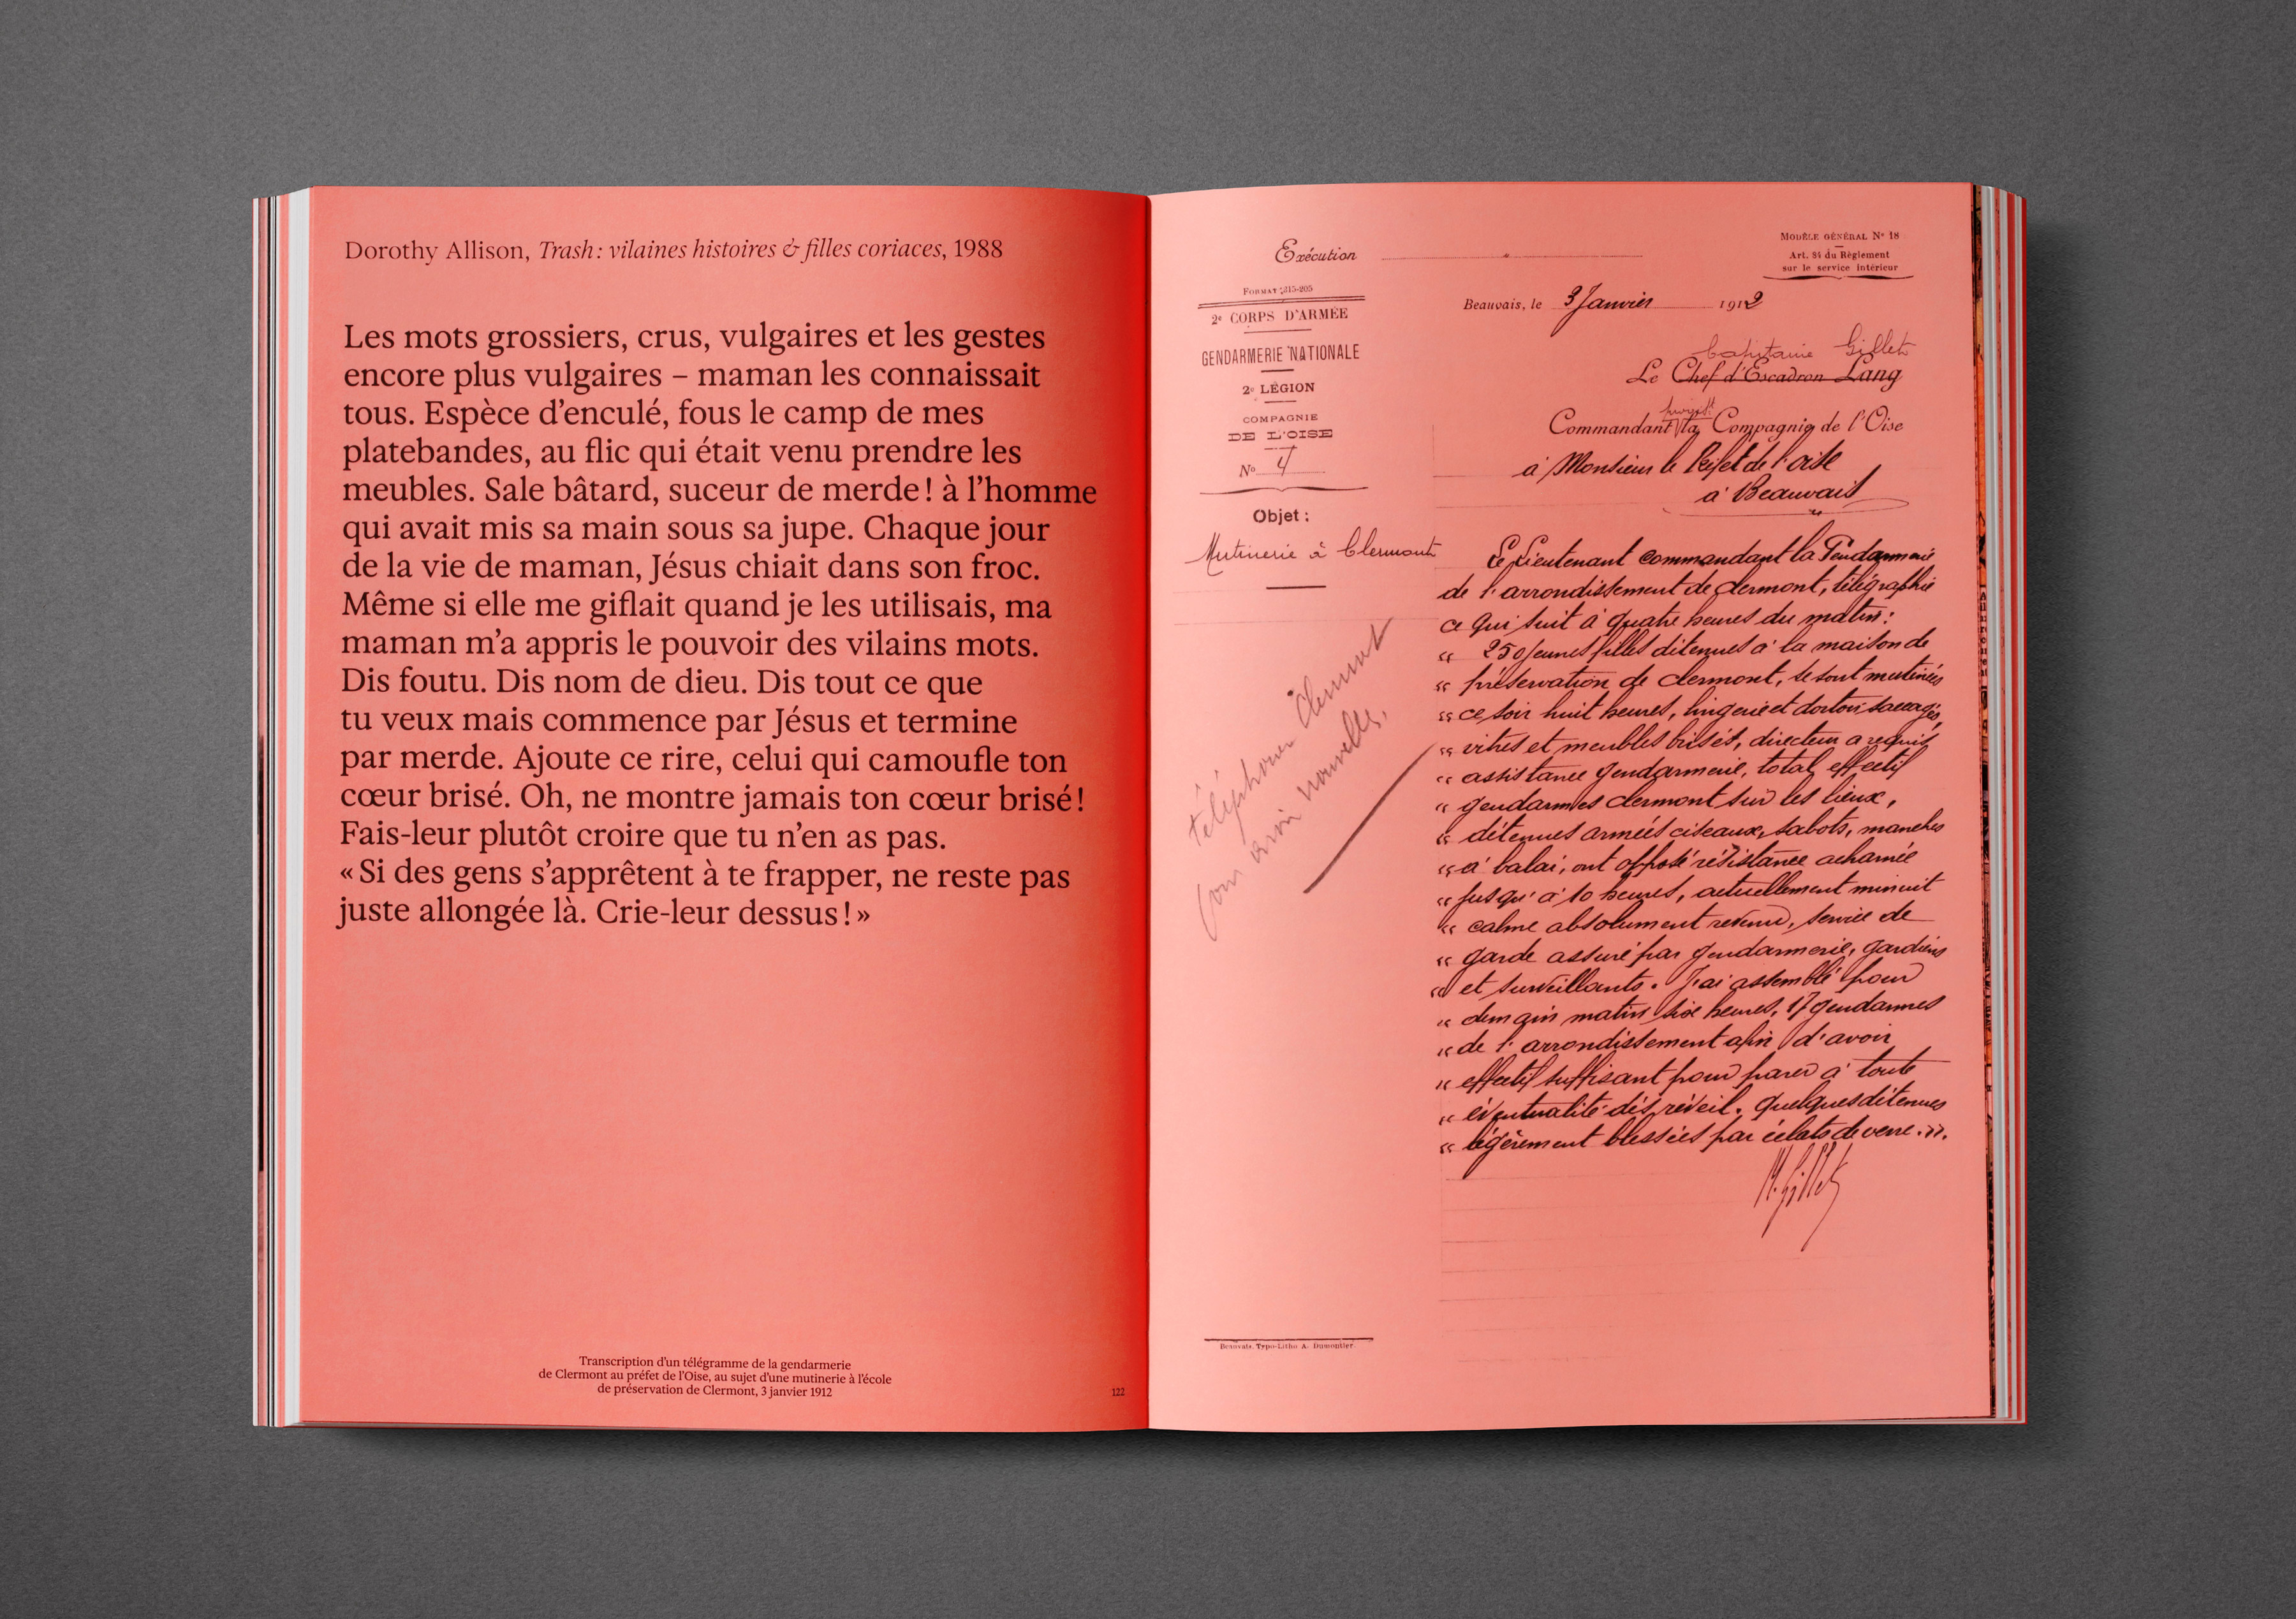 Dorothy Allison, Trash : vilaines histoires & filles coriaces, 1988
Les mots grossiers, crus, vulgaires et les gestes
encore plus vulgaires – maman les connaissait
tous. Espèce d’enculé, fous le camp de mes
platebandes, au flic qui était venu prendre les
meubles. Sale bâtard, suceur de merde ! à l’homme
qui avait mis sa main sous sa jupe. Chaque jour
de la vie de maman, Jésus chiait dans son froc.
Même si elle me giflait quand je les utilisais, ma
maman m’a appris le pouvoir des vilains mots.
Dis foutu. Dis nom de dieu. Dis tout ce que
tu veux mais commence par Jésus et termine
par merde. Ajoute ce rire, celui qui camoufle ton
cœur brisé. Oh, ne montre jamais ton cœur brisé !
Fais-leur plutôt croire que tu n’en as pas.
« Si des gens s’apprêtent à te frapper, ne reste pas
juste allongée là. Crie-leur dessus ! »
Transcription d’un télégramme de la gendarmerie
de Clermont au préfet de l’Oise, au sujet d’une mutinerie à l’école
de préservation de Clermont, 3 janvier 1912
122
Exécution
MODÈLE GÉNÉRAL Nº 18
Art. 84 du Règlement
sur le service intérieur
FORMAT : 315-205
2e CORPS D’ARMÉE
GENDARMERIE NATIONALE
2e LÉGION
COMPAGNIE
DE L’OISE
Nº 4
Objet :
Mutinerie à Clermont
téléphoner Clermont
pour avoir nouvelles.
Beauvais, le 3 Janvier 1912
Capitaine Gillet
Le Chef d’Escadron Lang
Commandant la Compagnie de l’Oise
à Monsieur le Préfet de l’Oise
à Beauvais
Le Lieutenant commandant la Gendarmerie
de l’arrondissement de Clermont, télégraphie
ce qui suit à quatre heures du matin :
“ 250 jeunes filles détenues à la maison de
“ préservation de Clermont, se sont mutinées
“ ce soir huit heures, lingerie et dortoir saccagés,
“ vitres et meubles brisés, directeur a requis
“ assistance gendarmerie, total effectif
“ gendarmes Clermont sur les lieux,
“ détenues armées ciseaux, sabots, manches
“ à balai, ont opposé résistance acharnée
“ jusqu’à 10 heures, actuellement minuit
“ calme absolument revenu, service de
“ garde assuré par gendarmerie, gardiens
“ et surveillants. J’ai assemblé pour
“ demain matin six heures, 17 gendarmes
“ de l’arrondissement afin d’avoir
“ effectif suffisant pour parer à toute
“ éventualité dès réveil. Quelques détenues
“ légèrement blessées par éclats de verre. ”.
M. Gillet
Beauvais. Typo-Litho A. Dumontier.